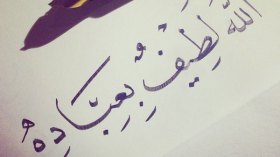 اللَّه لَطِيفٌ بِعِبَادِهِ